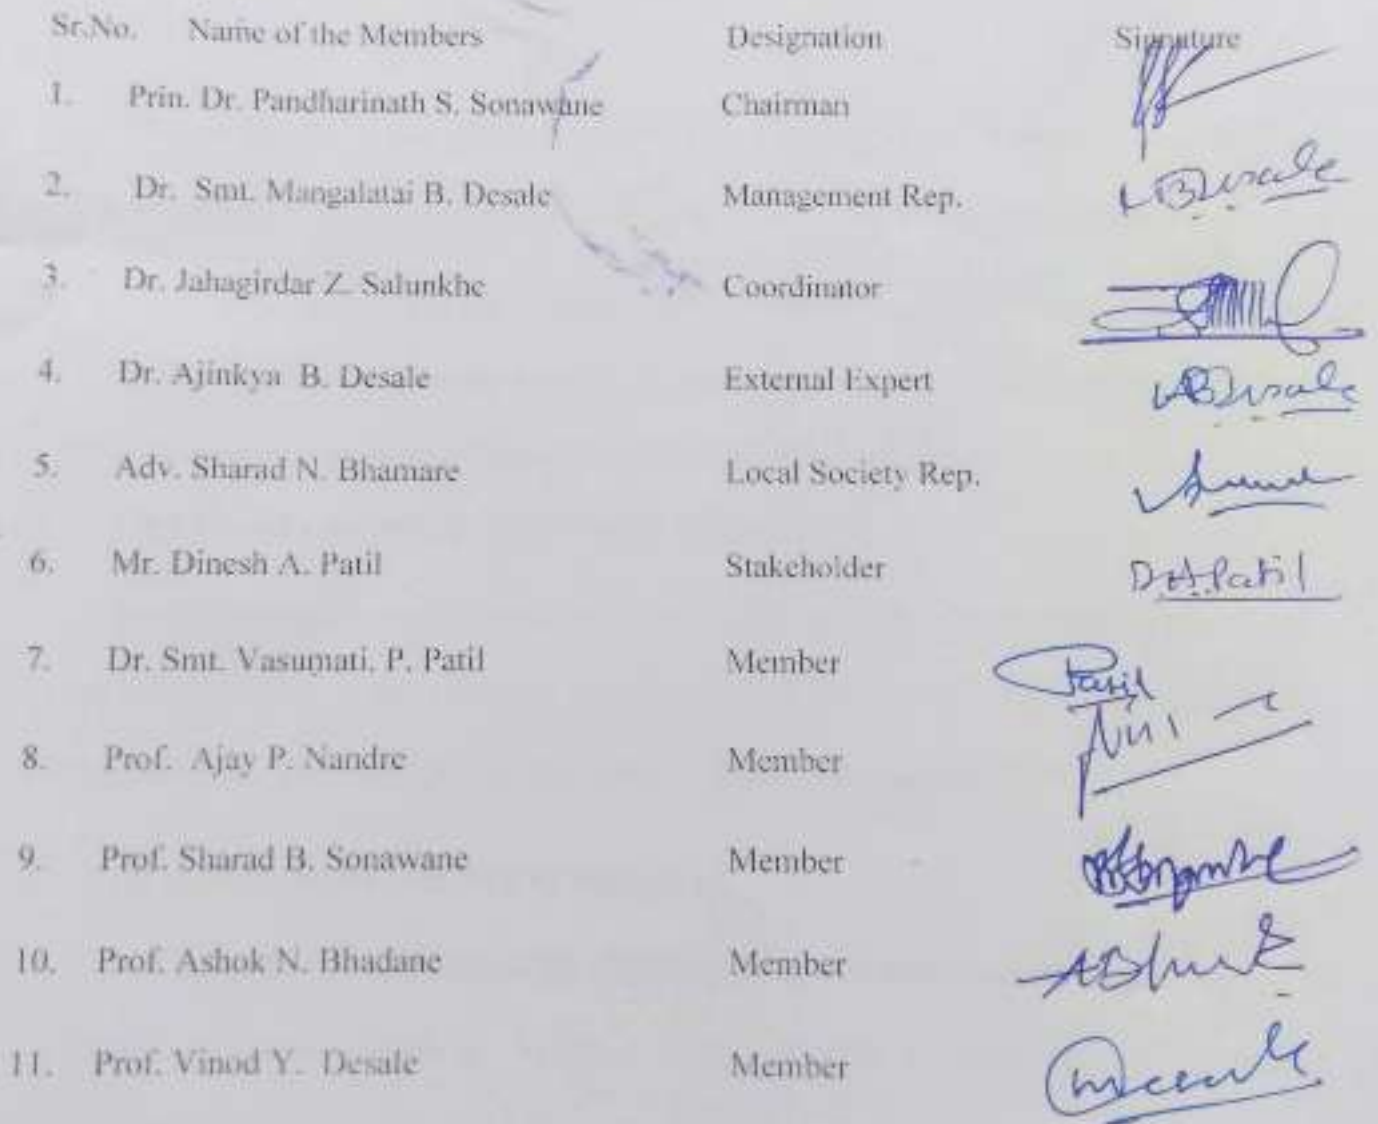 Sr.No. Name of the Members Designation Signature
1. Prin. Dr. Pandharinath S. Sonawane Chairman
2. Dr. Smt. Mangalatai B. Desale Management Rep. Desale
3. Dr. Jahagirdar Z. Salunkhe Coordinator
4. Dr. Ajinkya B. Desale External Expert ABDesale
5. Adv. Sharad N. Bhamare Local Society Rep.
6. Mr. Dinesh A. Patil Stakeholder D.A.Patil
7. Dr. Smt. Vasumati. P. Patil Member Patil
8. Prof. Ajay P. Nandre Member
9. Prof. Sharad B. Sonawane Member
10. Prof. Ashok N. Bhadane Member
11. Prof. Vinod Y. Desale Member